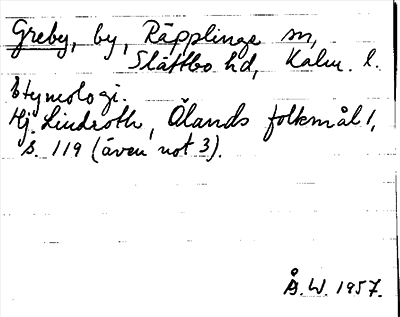 Greby, by, Räpplinge sn,
Slättbo hd, Kalm. l.
Etymologi.
Hj. Lindroth, Ölands folkmål 1,
s. 119 (även not 3).
Å.W. 1957.